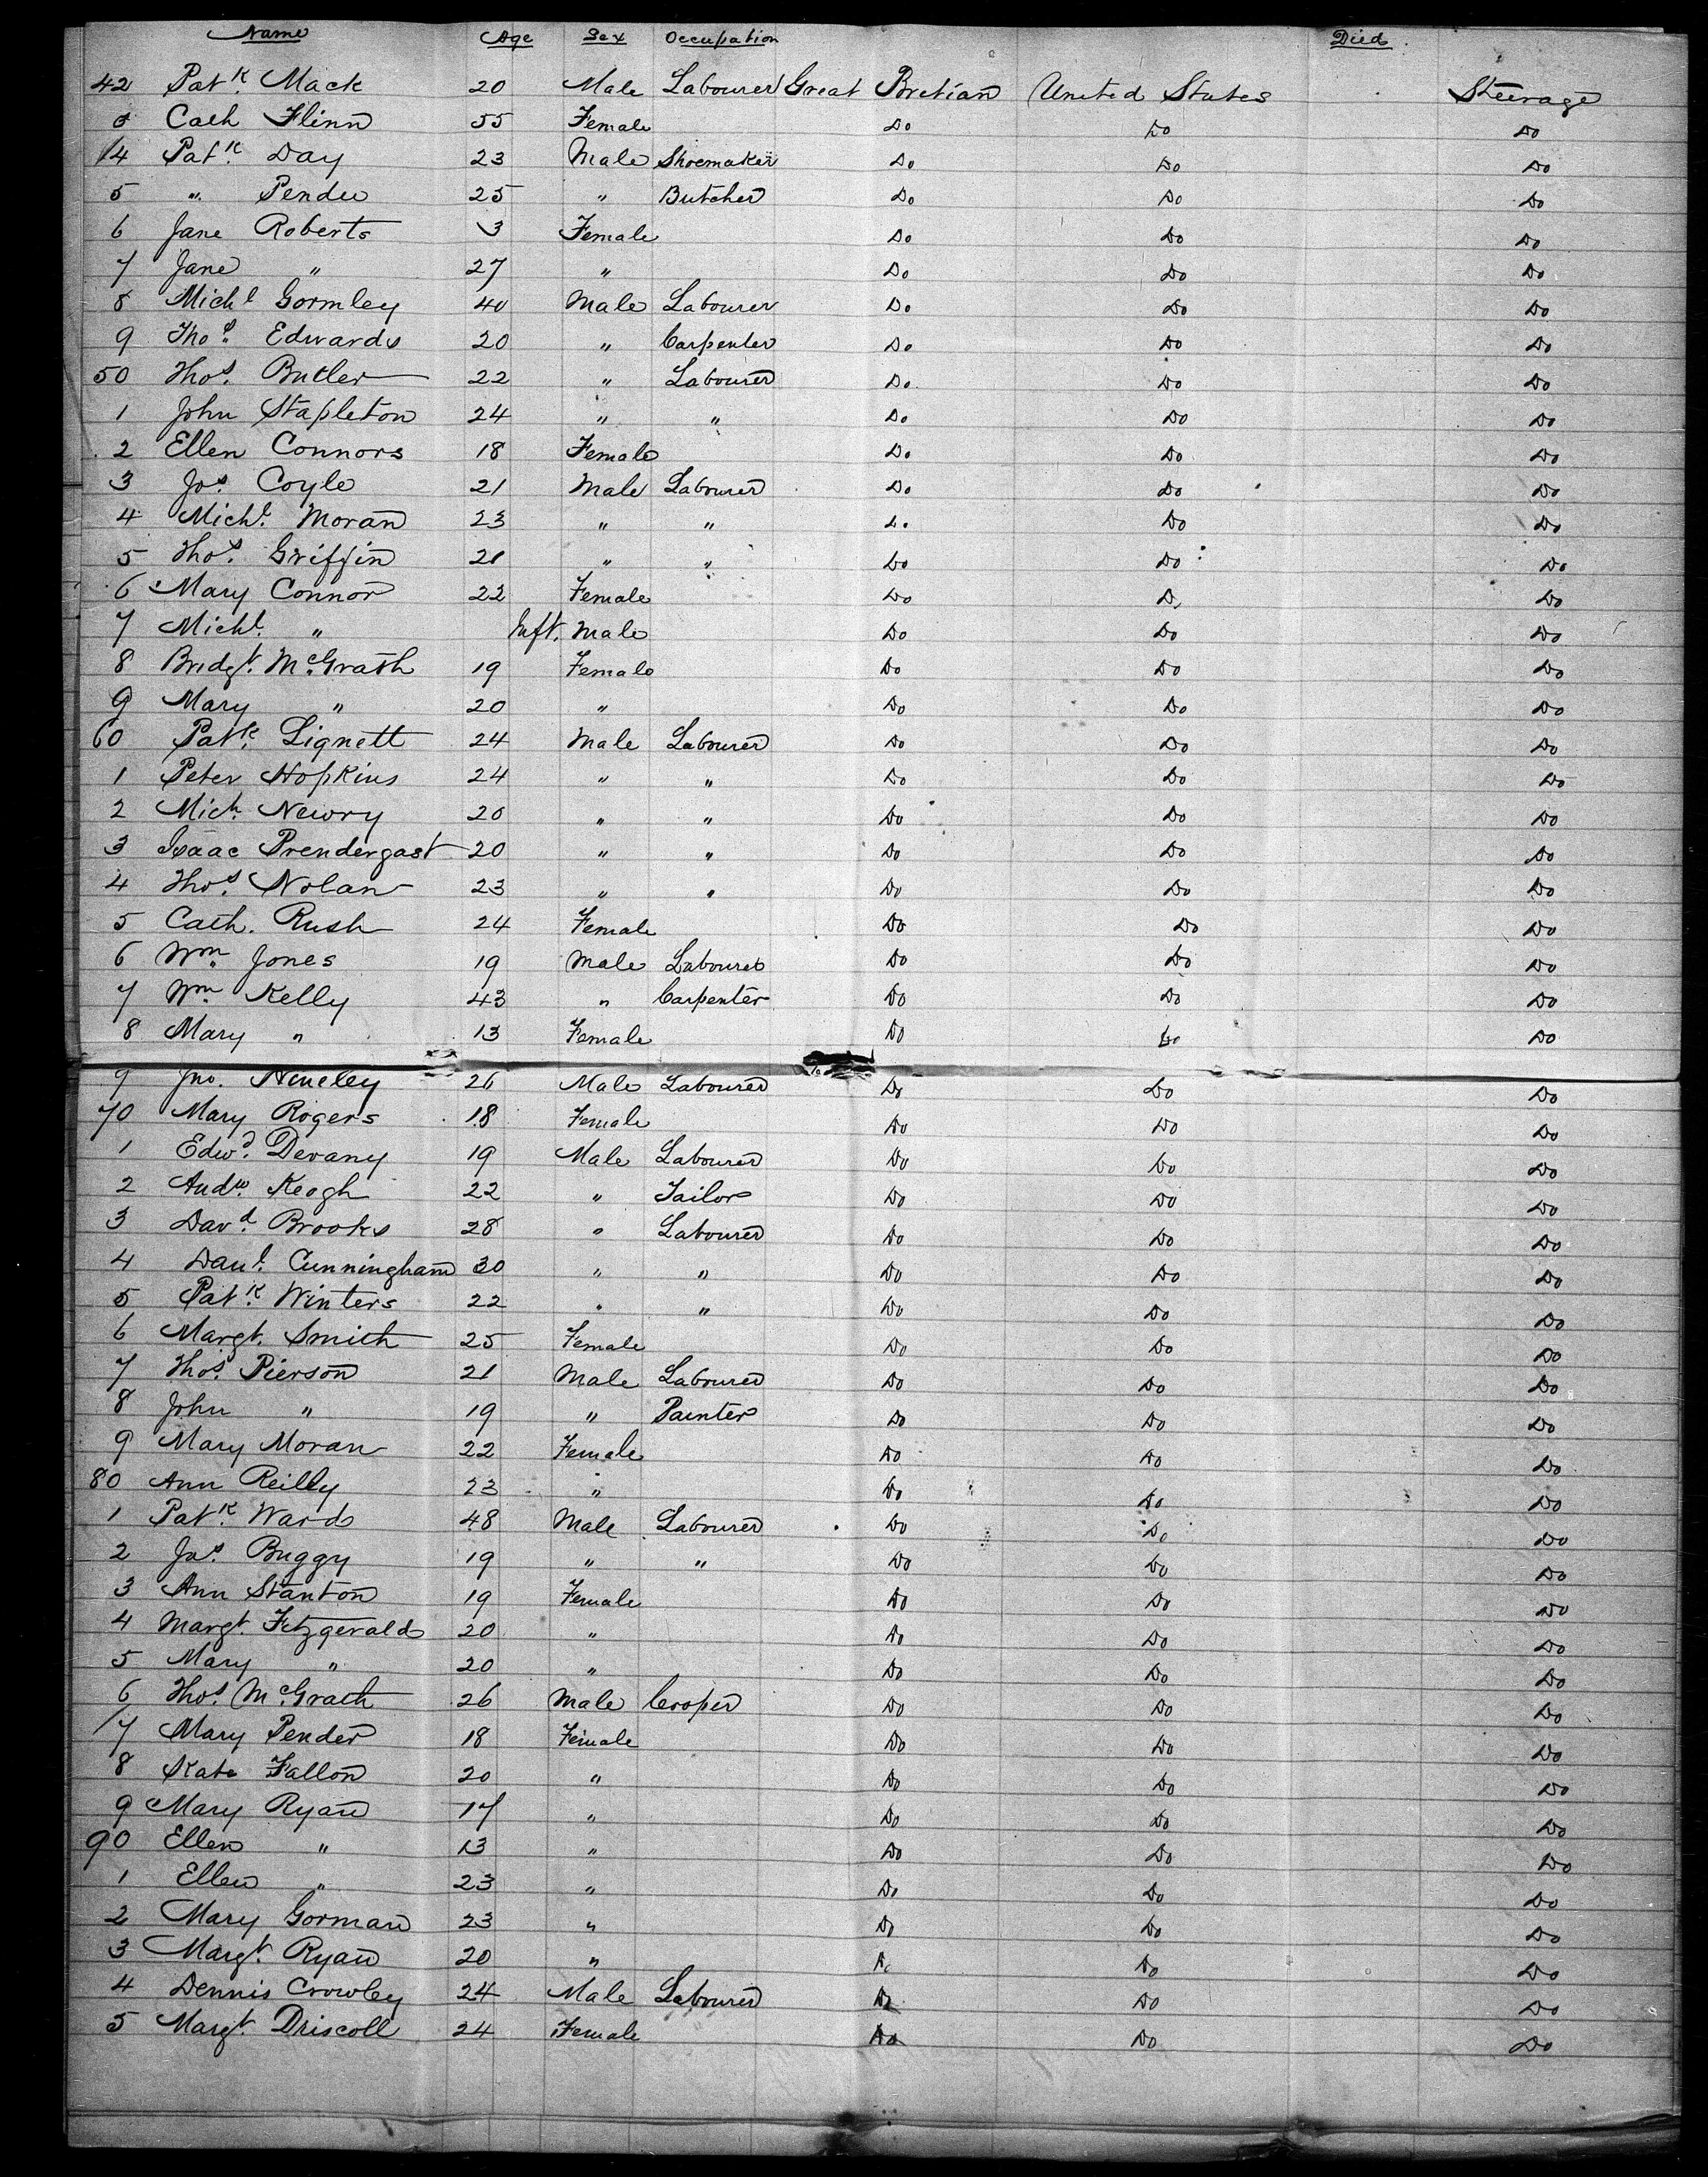 Name Age Sex Occupation Died
42 Patk. Mack 20 Male Labourer Great Bretian United States Steerage
3 Cath Flinn 55 Female Do Do Do
4 Patk. Day 23 Male Shoemaker Do Do Do
5 " Pender 25 " Butcher Do Do Do
6 Jane Roberts 3 Female Do Do Do
7 Jane " 27 " Do Do Do
8 Michl Gormley 40 Male Labourer Do Do Do
9 Thos. Edwards 20 " Carpenter Do Do Do
50 Thos. Butler 22 " Labourer Do Do Do
1 John Stapleton 24 " " Do Do Do
2 Ellen Connors 18 Female Do Do Do
3 Jos. Coyle 21 Male Labourer Do Do Do
4 Michl. Moran 23 " " Do Do Do
5 Thos. Griffin 21 " " Do Do Do
6 Mary Connor 22 Female Do Do Do
7 Michl. " Inft. Male Do Do Do
8 Bridgt. McGrath 19 Female Do Do Do
9 Mary " 20 " Do Do Do
60 Patk. Lignett 24 Male Labourer Do Do Do
1 Peter Hopkins 24 " " Do Do Do
2 Mich. Newry 20 " " Do Do Do
3 Isaac Prendergast 20 " " Do Do Do
4 Thos. Nolan 23 " " Do Do Do
5 Cath. Rush 24 Female Do Do Do
6 Wm. Jones 19 Male Labourer Do Do Do
7 Wm. Kelly 43 " Carpenter Do Do Do
8 Mary " 13 Female Do Do Do
9 Jno. 26 Male Labourer Do Do Do
70 Mary Rogers 18 Female Do Do Do
1 Edwd. Devany 19 Male Labourer Do Do Do
2 Andw. Keogh 22 " Tailor Do Do Do
3 Davd. Brooks 28 " Labourer Do Do Do
4 Danl. Cunningham 30 " " Do Do Do
5 Patk. Winters 22 " " Do Do Do
6 Margt. Smith 25 Female Do Do Do
7 Thos. Pierson 21 Male Labourer Do Do Do
8 John " 19 " Painter Do Do Do
9 Mary Moran 22 Female Do Do Do
80 Ann Reilly 23 " Do Do Do
1 Patk. Ward 48 Male Labourer Do Do Do
2 Jas. Buggy 19 " " Do Do Do
3 Ann Stanton 19 Female Do Do Do
4 Margt. Fitzgerald 20 " Do Do Do
5 Mary " 20 " Do Do Do
6 Thos. McGrath 26 Male Cooper Do Do Do
7 Mary Pender 18 Female Do Do Do
8 Kate Fallon 20 " Do Do Do
9 Mary Ryan 17 " Do Do Do
90 Ellen " 13 " Do Do Do
1 Ellen " 23 " Do Do Do
2 Mary Gorman 23 " Do Do Do
3 Margt. Ryan 20 " Do Do Do
4 Dennis Crowley 24 Male Labourer Do Do Do
5 Margt. Driscoll 24 Female Do Do Do